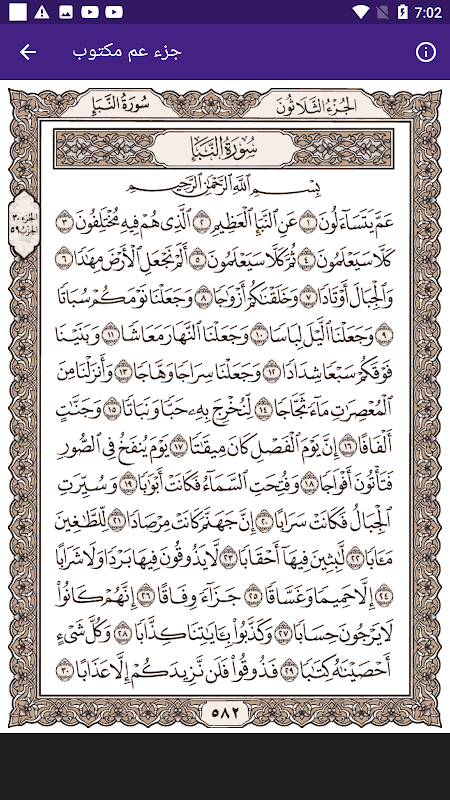 7:02
جزء عم مكتوب
الجُزْءُ الثَّلَاثُونَ
سُورَةُ النَّبَإِ
سُورَةُ النَّبَإِ
بِسْمِ اللَّهِ الرَّحْمَٰنِ الرَّحِيمِ
الجزء ٣٠
الحزب ٥٩
عَمَّ يَتَسَآءَلُونَ ١ عَنِ ٱلنَّبَإِ ٱلْعَظِيمِ ٢ ٱلَّذِى هُمْ فِيهِ مُخْتَلِفُونَ ٣
كَلَّا سَيَعْلَمُونَ ٤ ثُمَّ كَلَّا سَيَعْلَمُونَ ٥ أَلَمْ نَجْعَلِ ٱلْأَرْضَ مِهَٰدًا ٦
وَٱلْجِبَالَ أَوْتَادًا ٧ وَخَلَقْنَٰكُمْ أَزْوَٰجًا ٨ وَجَعَلْنَا نَوْمَكُمْ سُبَاتًا
٩ وَجَعَلْنَا ٱلَّيْلَ لِبَاسًا ١٠ وَجَعَلْنَا ٱلنَّهَارَ مَعَاشًا ١١ وَبَنَيْنَا
فَوْقَكُمْ سَبْعًا شِدَادًا ١٢ وَجَعَلْنَا سِرَاجًا وَهَّاجًا ١٣ وَأَنزَلْنَا مِنَ
ٱلْمُعْصِرَٰتِ مَآءً ثَجَّاجًا ١٤ لِّنُخْرِجَ بِهِۦ حَبًّا وَنَبَاتًا ١٥ وَجَنَّٰتٍ
أَلْفَافًا ١٦ إِنَّ يَوْمَ ٱلْفَصْلِ كَانَ مِيقَٰتًا ١٧ يَوْمَ يُنفَخُ فِى ٱلصُّورِ
فَتَأْتُونَ أَفْوَاجًا ١٨ وَفُتِحَتِ ٱلسَّمَآءُ فَكَانَتْ أَبْوَٰبًا ١٩ وَسُيِّرَتِ
ٱلْجِبَالُ فَكَانَتْ سَرَابًا ٢٠ إِنَّ جَهَنَّمَ كَانَتْ مِرْصَادًا ٢١ لِّلطَّٰغِينَ
مَـَٔابًا ٢٢ لَّٰبِثِينَ فِيهَآ أَحْقَابًا ٢٣ لَّا يَذُوقُونَ فِيهَا بَرْدًا وَلَا شَرَابًا
٢٤ إِلَّا حَمِيمًا وَغَسَّاقًا ٢٥ جَزَآءً وِفَاقًا ٢٦ إِنَّهُمْ كَانُوا۟
لَا يَرْجُونَ حِسَابًا ٢٧ وَكَذَّبُوا۟ بِـَٔايَٰتِنَا كِذَّابًا ٢٨ وَكُلَّ شَىْءٍ
أَحْصَيْنَٰهُ كِتَٰبًا ٢٩ فَذُوقُوا۟ فَلَن نَّزِيدَكُمْ إِلَّا عَذَابًا ٣٠
٥٨٢